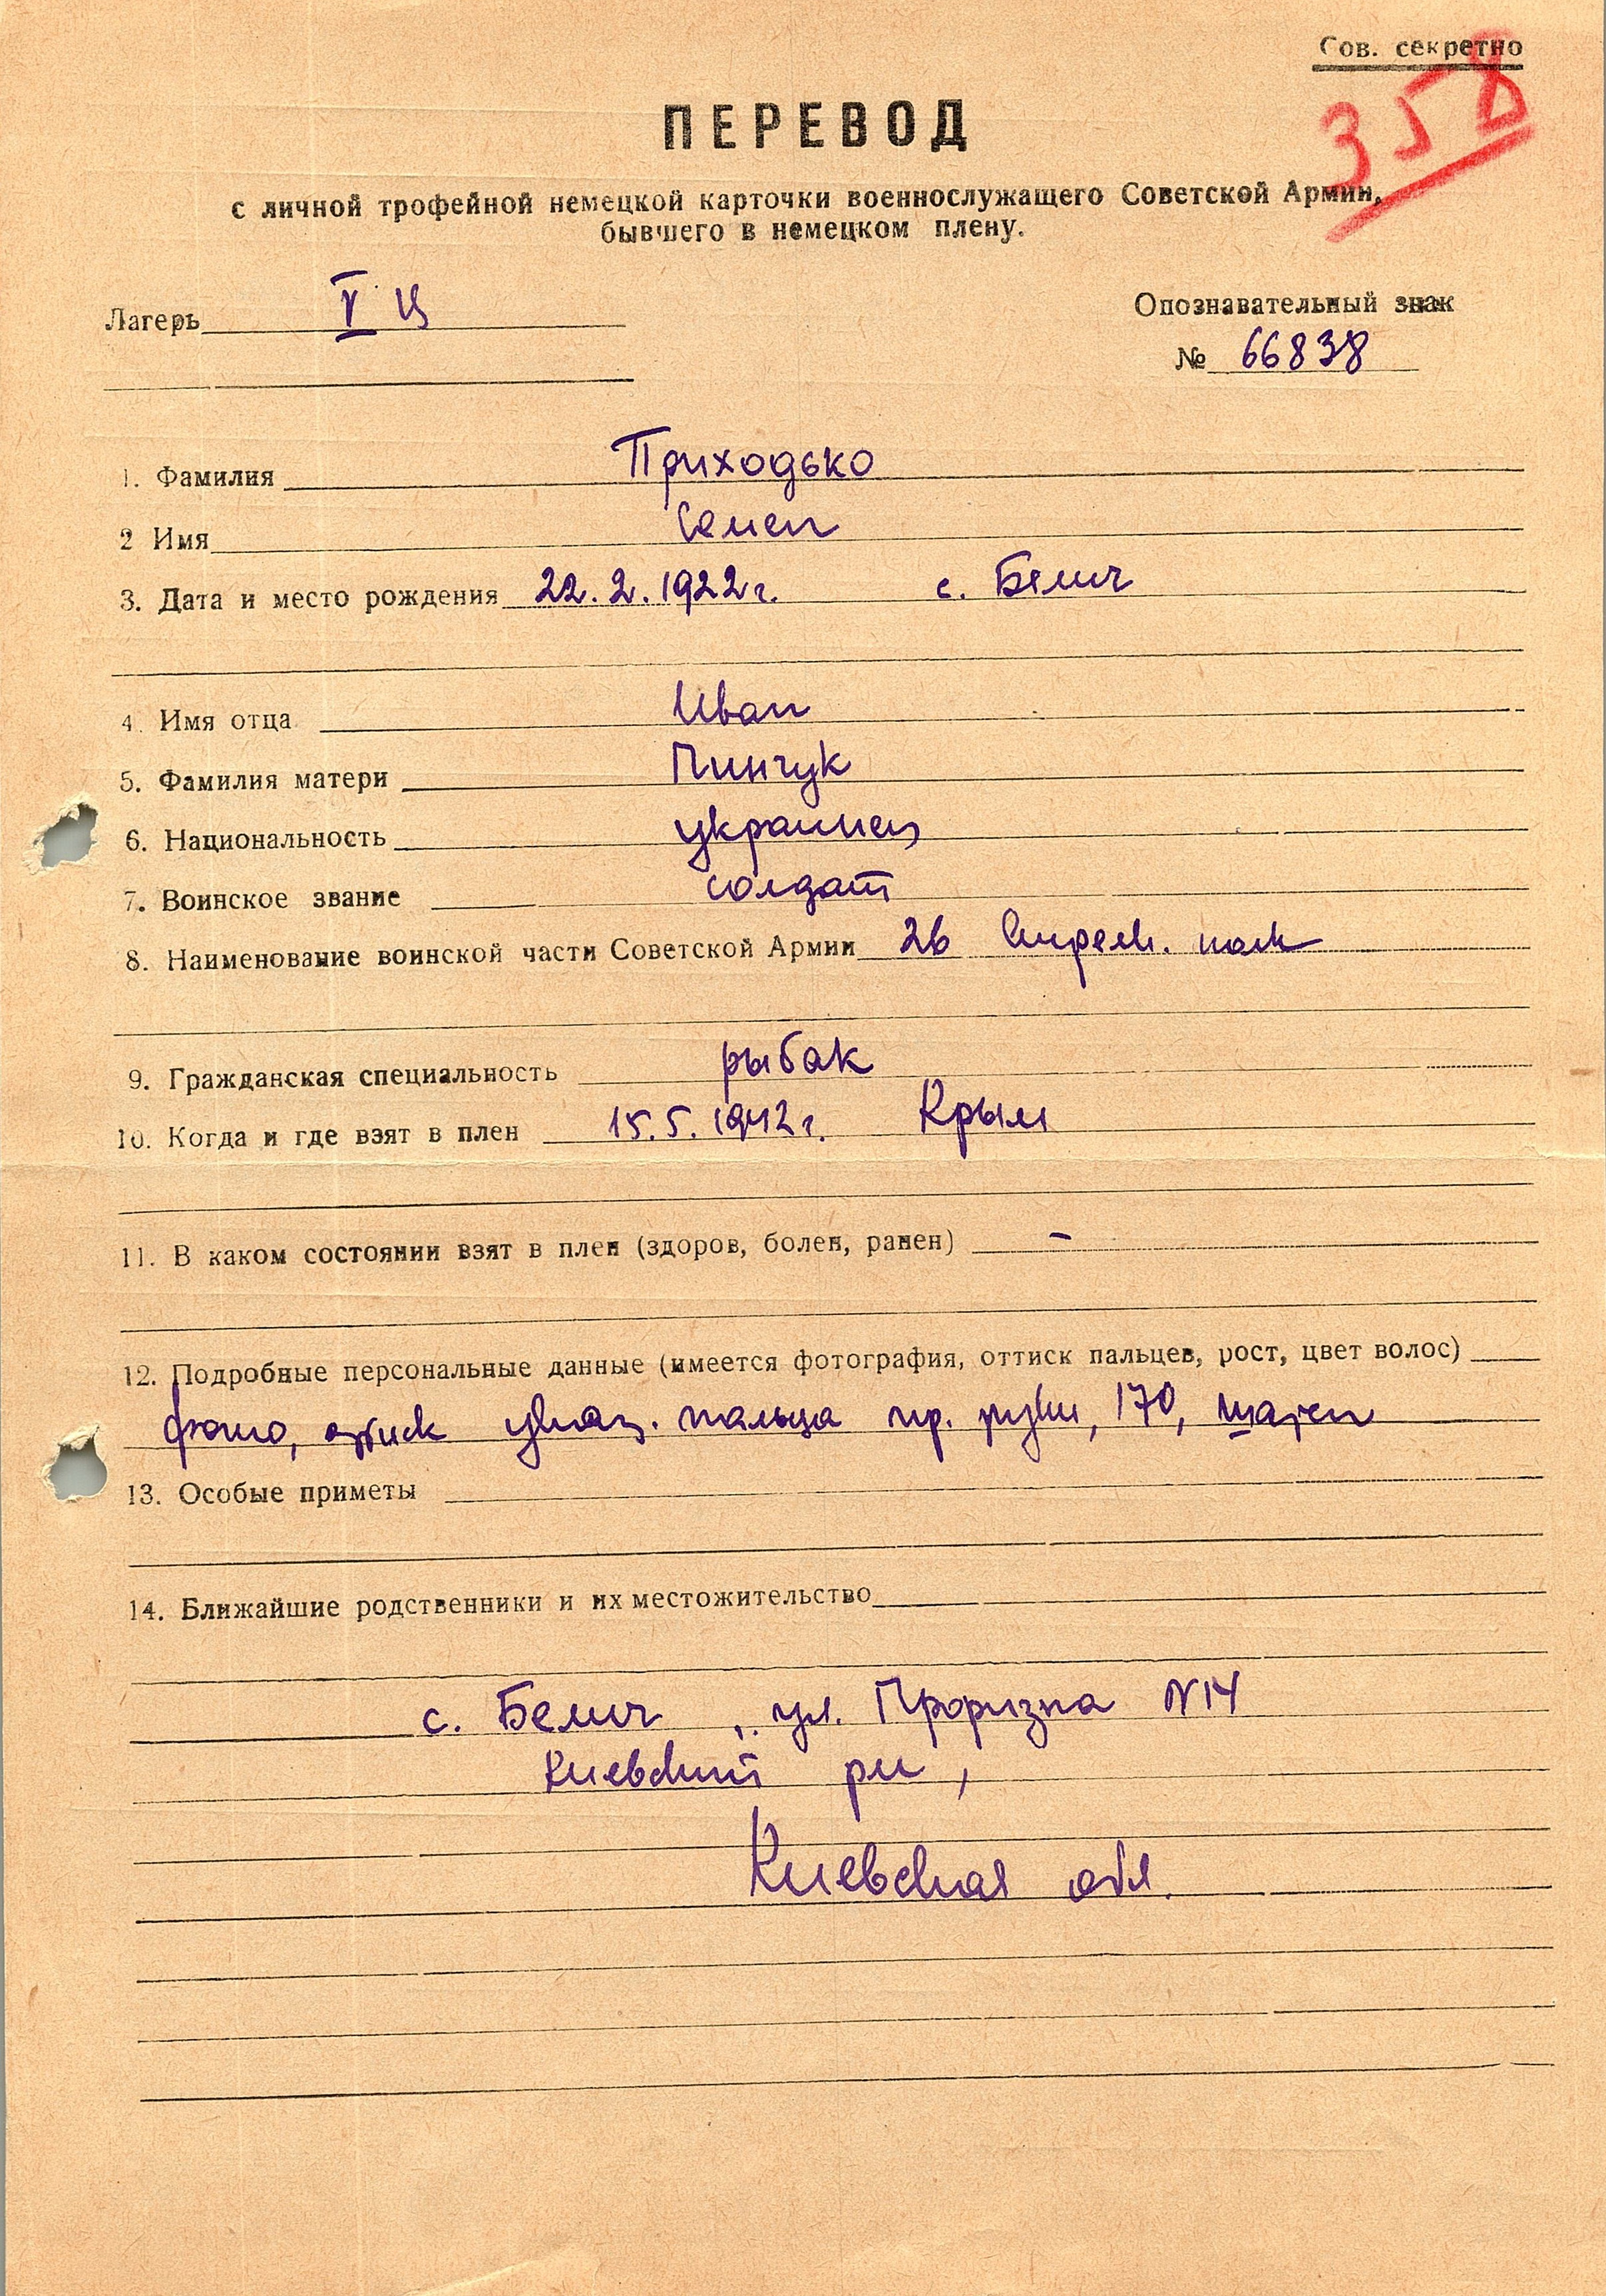 Сов. секретно
358
ПЕРЕВОД
с личной трофейной немецкой карточки военнослужащего Советской Армии,
бывшего в немецком плену.
Лагерь V Ц
Опознавательный знак
№ 66838
1. Фамилия Приходько
2 Имя Семен
3. Дата и место рождения 22.2.1922г. с. Белич
4. Имя отца Иван
5. Фамилия матери Пинчук
6. Национальность украинец
7. Воинское звание солдат
8. Наименование воинской части Советской Армии 26 стрелк. полк
9. Гражданская специальность рыбак
10. Когда и где взят в плен 15.5.1942г. Крым
11. В каком состоянии взят в плен (здоров, болен, ранен) –
12. Подробные персональные данные (имеется фотография, оттиск пальцев, рост, цвет волос)
фото, оттиск указ. пальца пр. руки, 170, шатен
13. Особые приметы
14. Ближайшие родственники и их местожительство
с. Белич, ул. Проризна N14
Киевский рн,
Киевская обл.